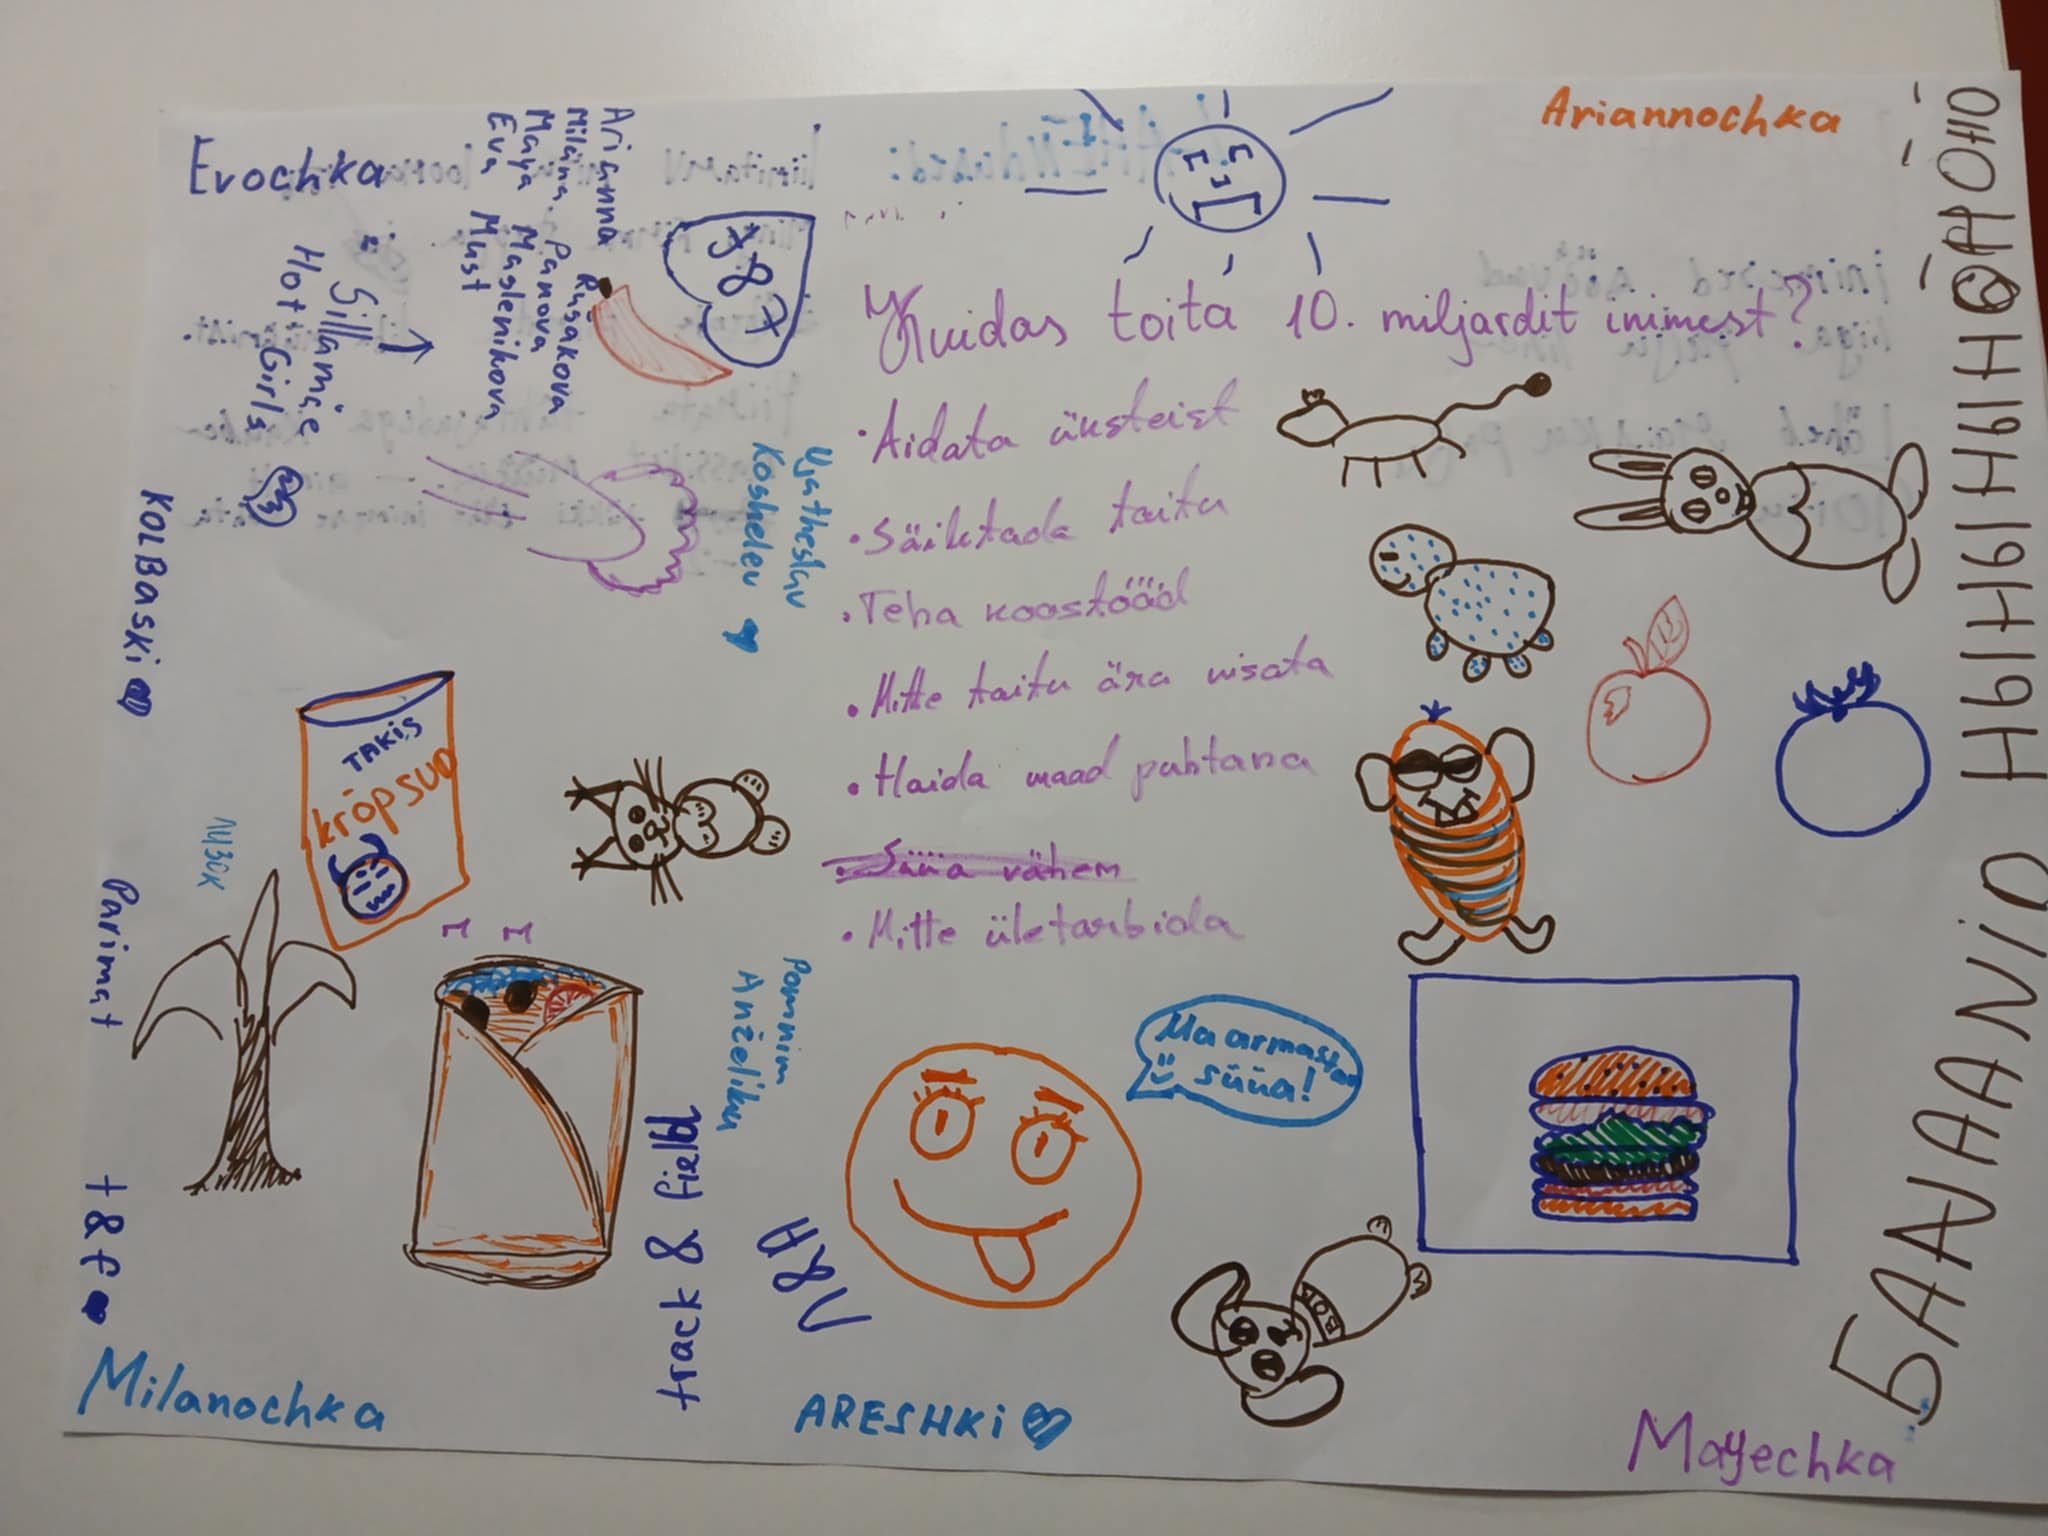 Ariannochka
Evochka
Arianna Rusakova
Milana Panova
Maya Maslenikova
Eva Must
= Sillamäe
Hot Girls
Kuidas toita 10. miljardit inimest?
• Aidata üksteist
• Säiletada toitu
• Teha koostööd
• Mitte toitu ära visata
• Haida maad puhtana
• Süüa vähem
• Mitteületarbida
Koshelev
KOLBASKi
TAKIS
kröpsud
Parimat
t&f
Pomnim
Anželiku
track & field
Ma armastan
süüa!
БОЙЬ
Milanochka
ARESHKi
Mayechka